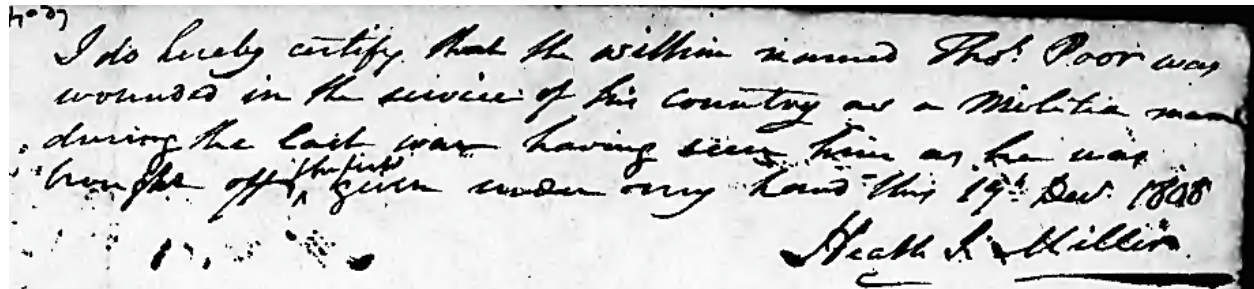 I do hereby certify that the within named Thos. Poor was
wounded in the service of his country as a Militia man
during the last war having seen him as he was
brought off the field given under my hand this 19th Decr. 1808
Heath J. Miller